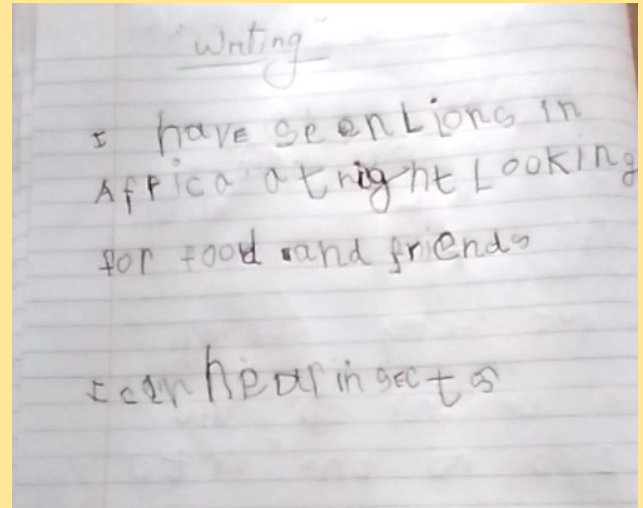 "Writing"
I have seen Lions in
Africa at night Looking
for food and friends
I can hear insects